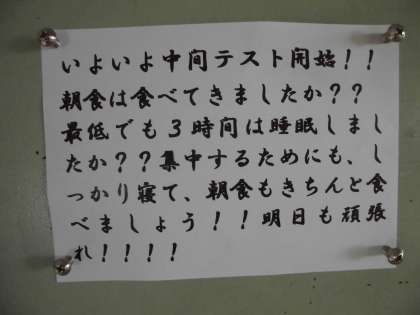 いよいよ中間テスト開始！！
朝食は食べてきましたか？？
最低でも３時間は睡眠しまし
たか？？集中するためにも、し
っかり寝て、朝食もきちんと食
べましょう！！明日も頑張
れ！！！！